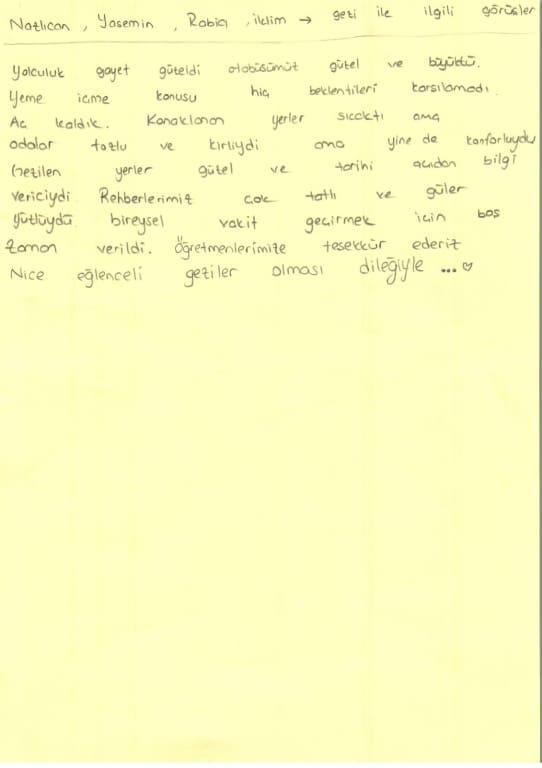 Nazlıcan, Yasemin, Rabia, iklim → gezi ile ilgili görüşler
Yolculuk gayet güzeldi otobüsümüz güzel ve büyüktü.
Yeme icme konusu hiç beklentileri karsılamadı.
Ac kaldık. Konaklanan yerler sıcaktı ama
odalar tozlu ve kirliydi ama yine de konforluydu
Gezilen yerler güzel ve tarihi acıdan bilgi
vericiydi Rehberlerimiz cok tatlı ve güler
yüzlüydü bireysel vakit gecirmek icin bos
zaman verildi. Öğretmenlerimize tesekkür ederiz
Nice eğlenceli geziler olması dileğiyle ... ♡